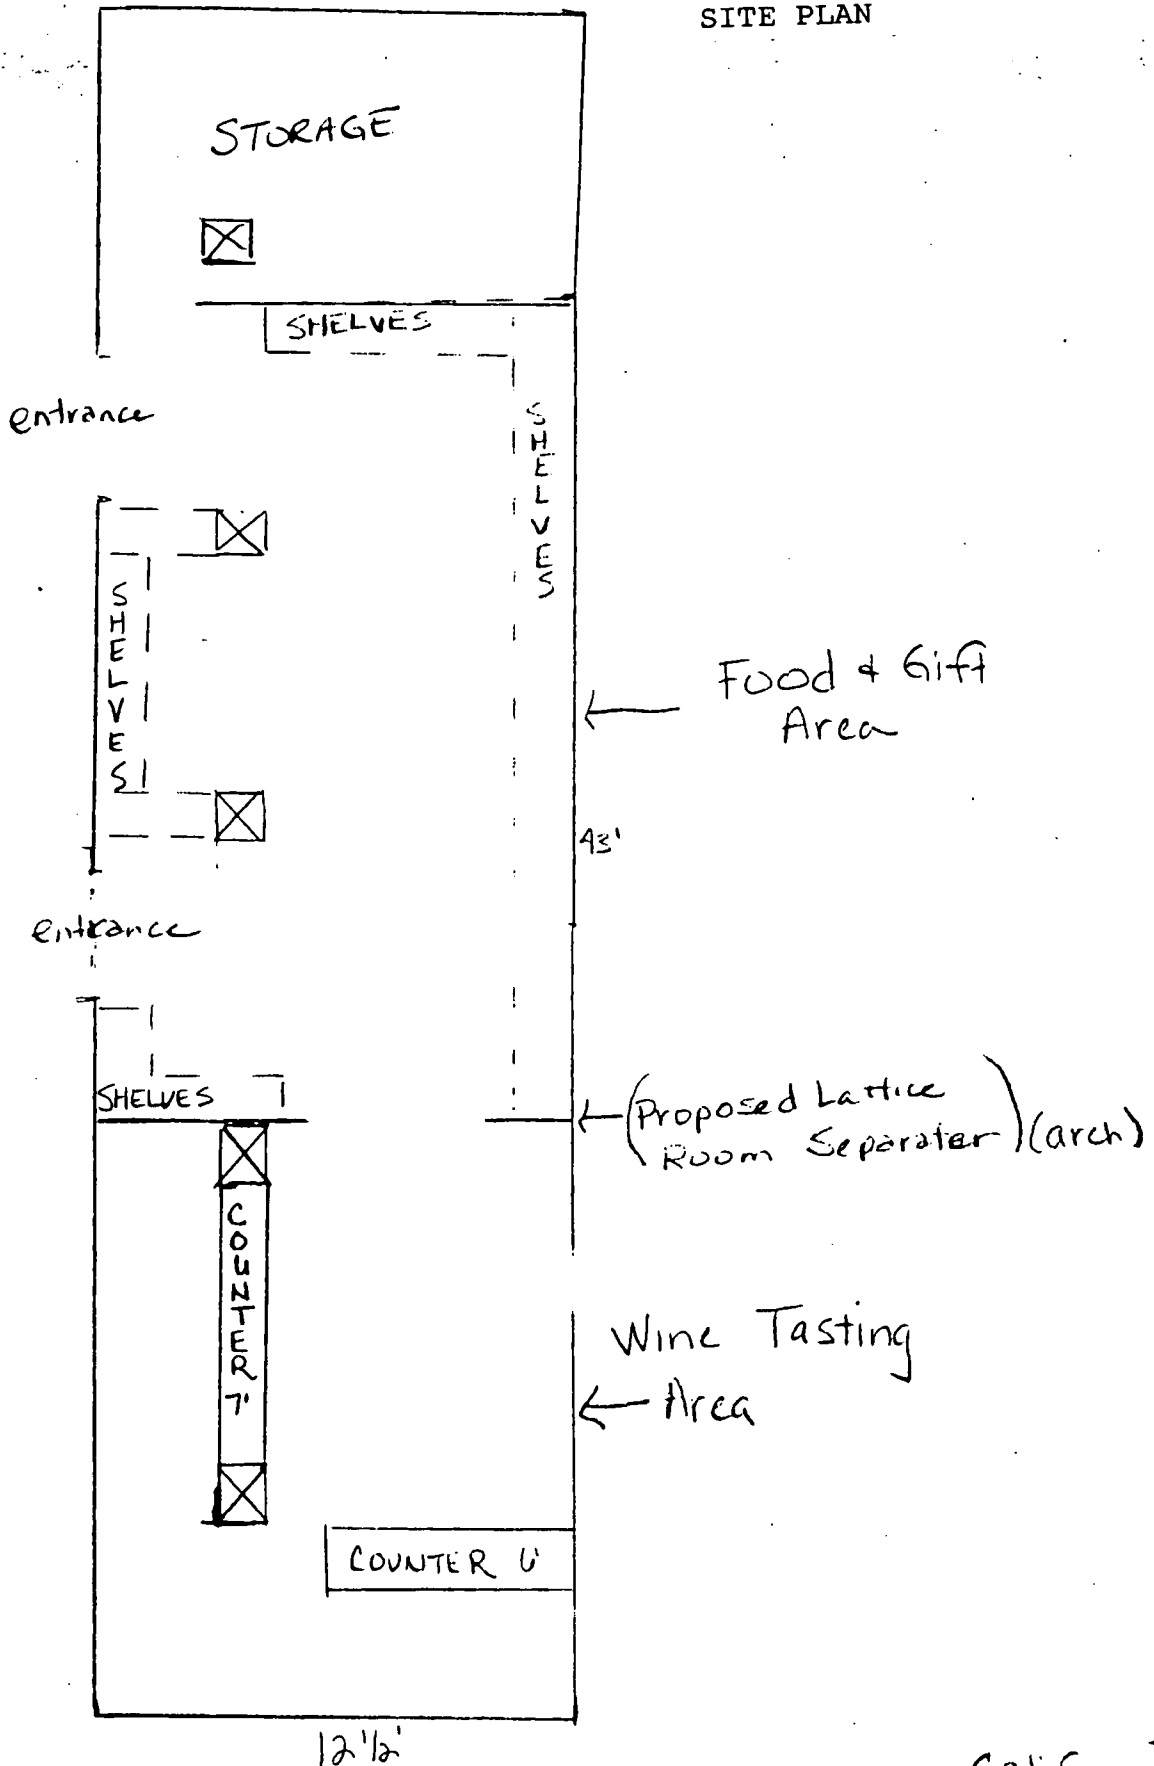 SITE PLAN
STORAGE
SHELVES
entrance
SHELVES
SHELVES
Food & Gift
Area
43'
entrance
SHELVES
(Proposed Lattice
Room Separater) (arch)
COUNTER 7'
Wine Tasting
Area
COUNTER 6'
12'½'